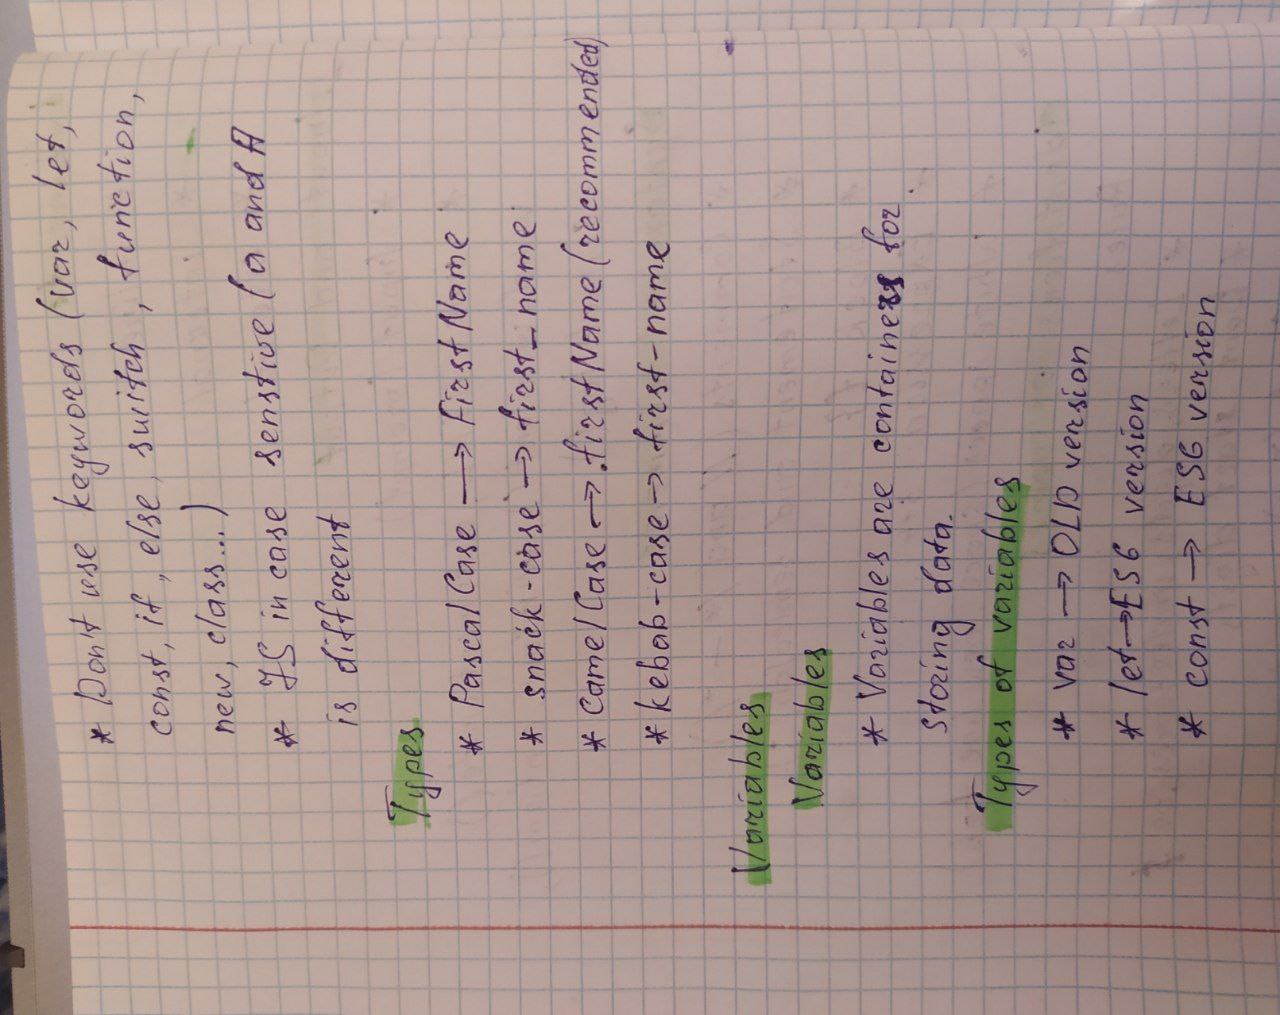 * Dont use keywords (var, let,
const, if, else, switch, function,
new, class...)
* JS in case senstive (a and A
is different
Types
* PascalCase → FirstName
* snack-case → first_name
* CamelCase → firstName (recommended)
* kebab-case → first-name
Variables
Variables
* Variables are containers for
storing data.
Types of variables
* var → OLD version
* let → ES6 version
* const → ES6 version